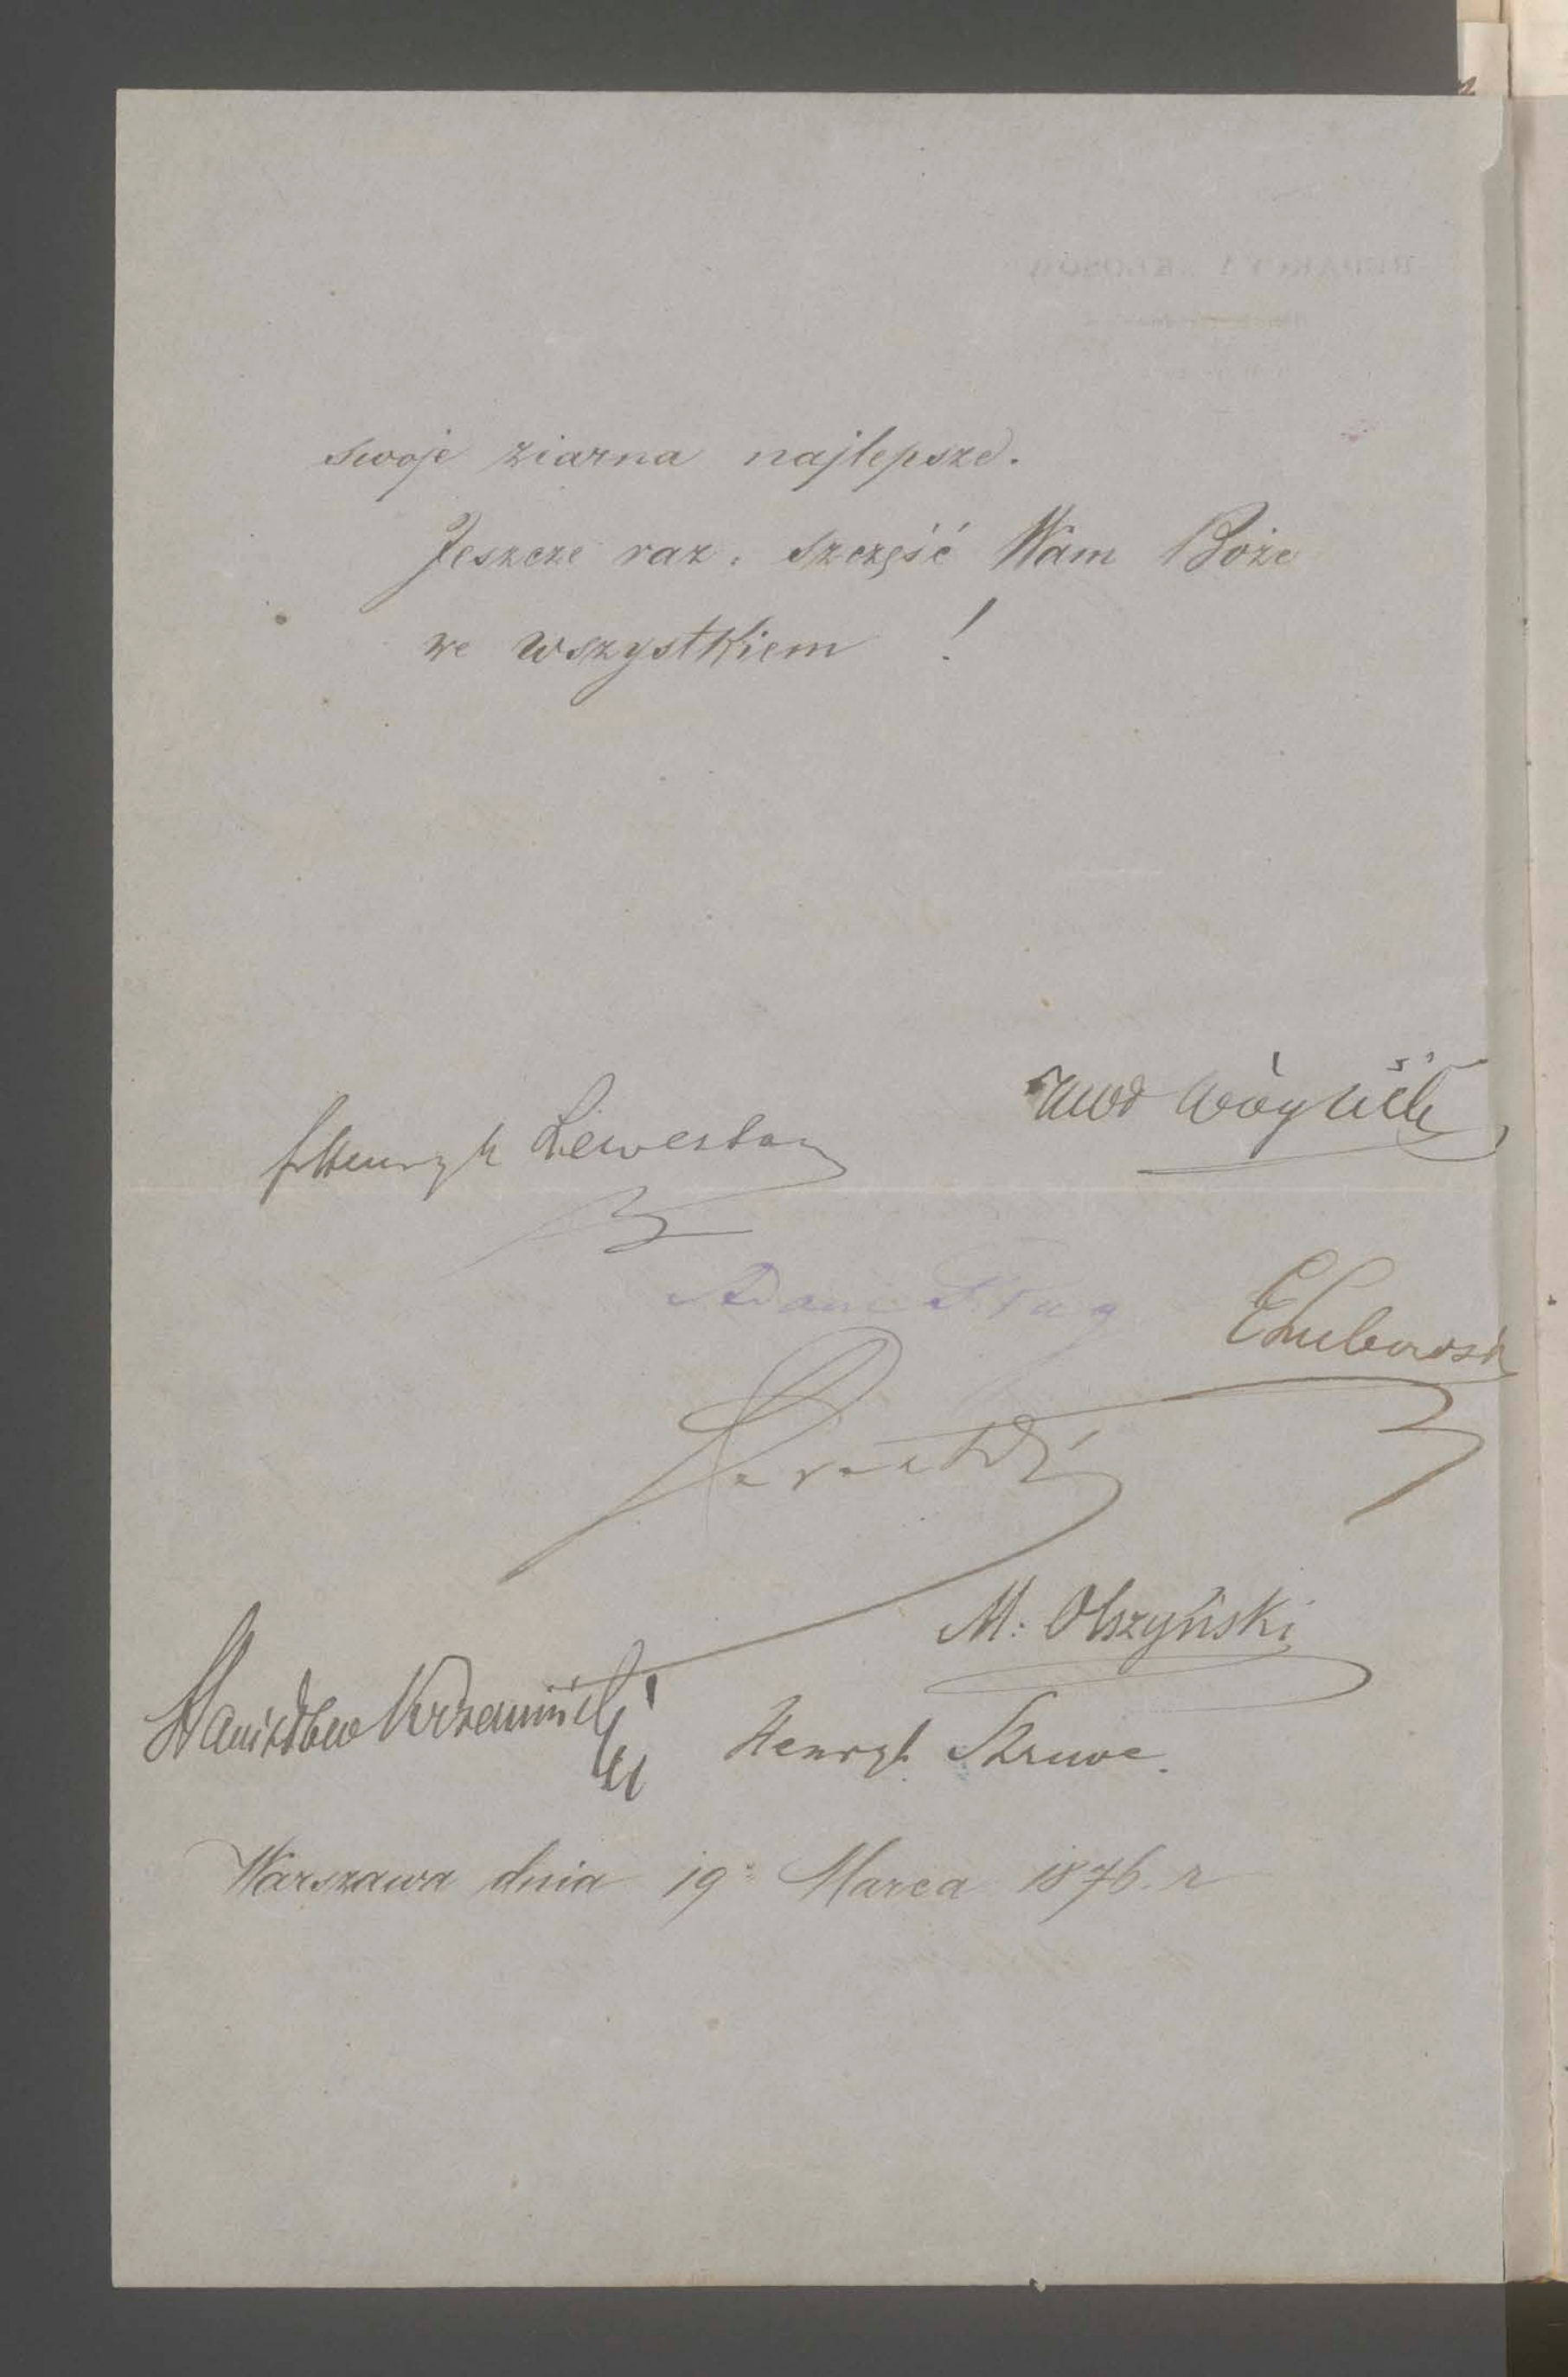 swoje ziarna najlepsze.
Jeszcze raz: szczęść Wam Boże
we wszystkiem !
F. Henryk Lewestam
Adam Pług
E Lubowski
M: Olszyński
Stanisław Krzemiński
Henryk Struve.
Warszawa dnia 19º Marca 1876. r